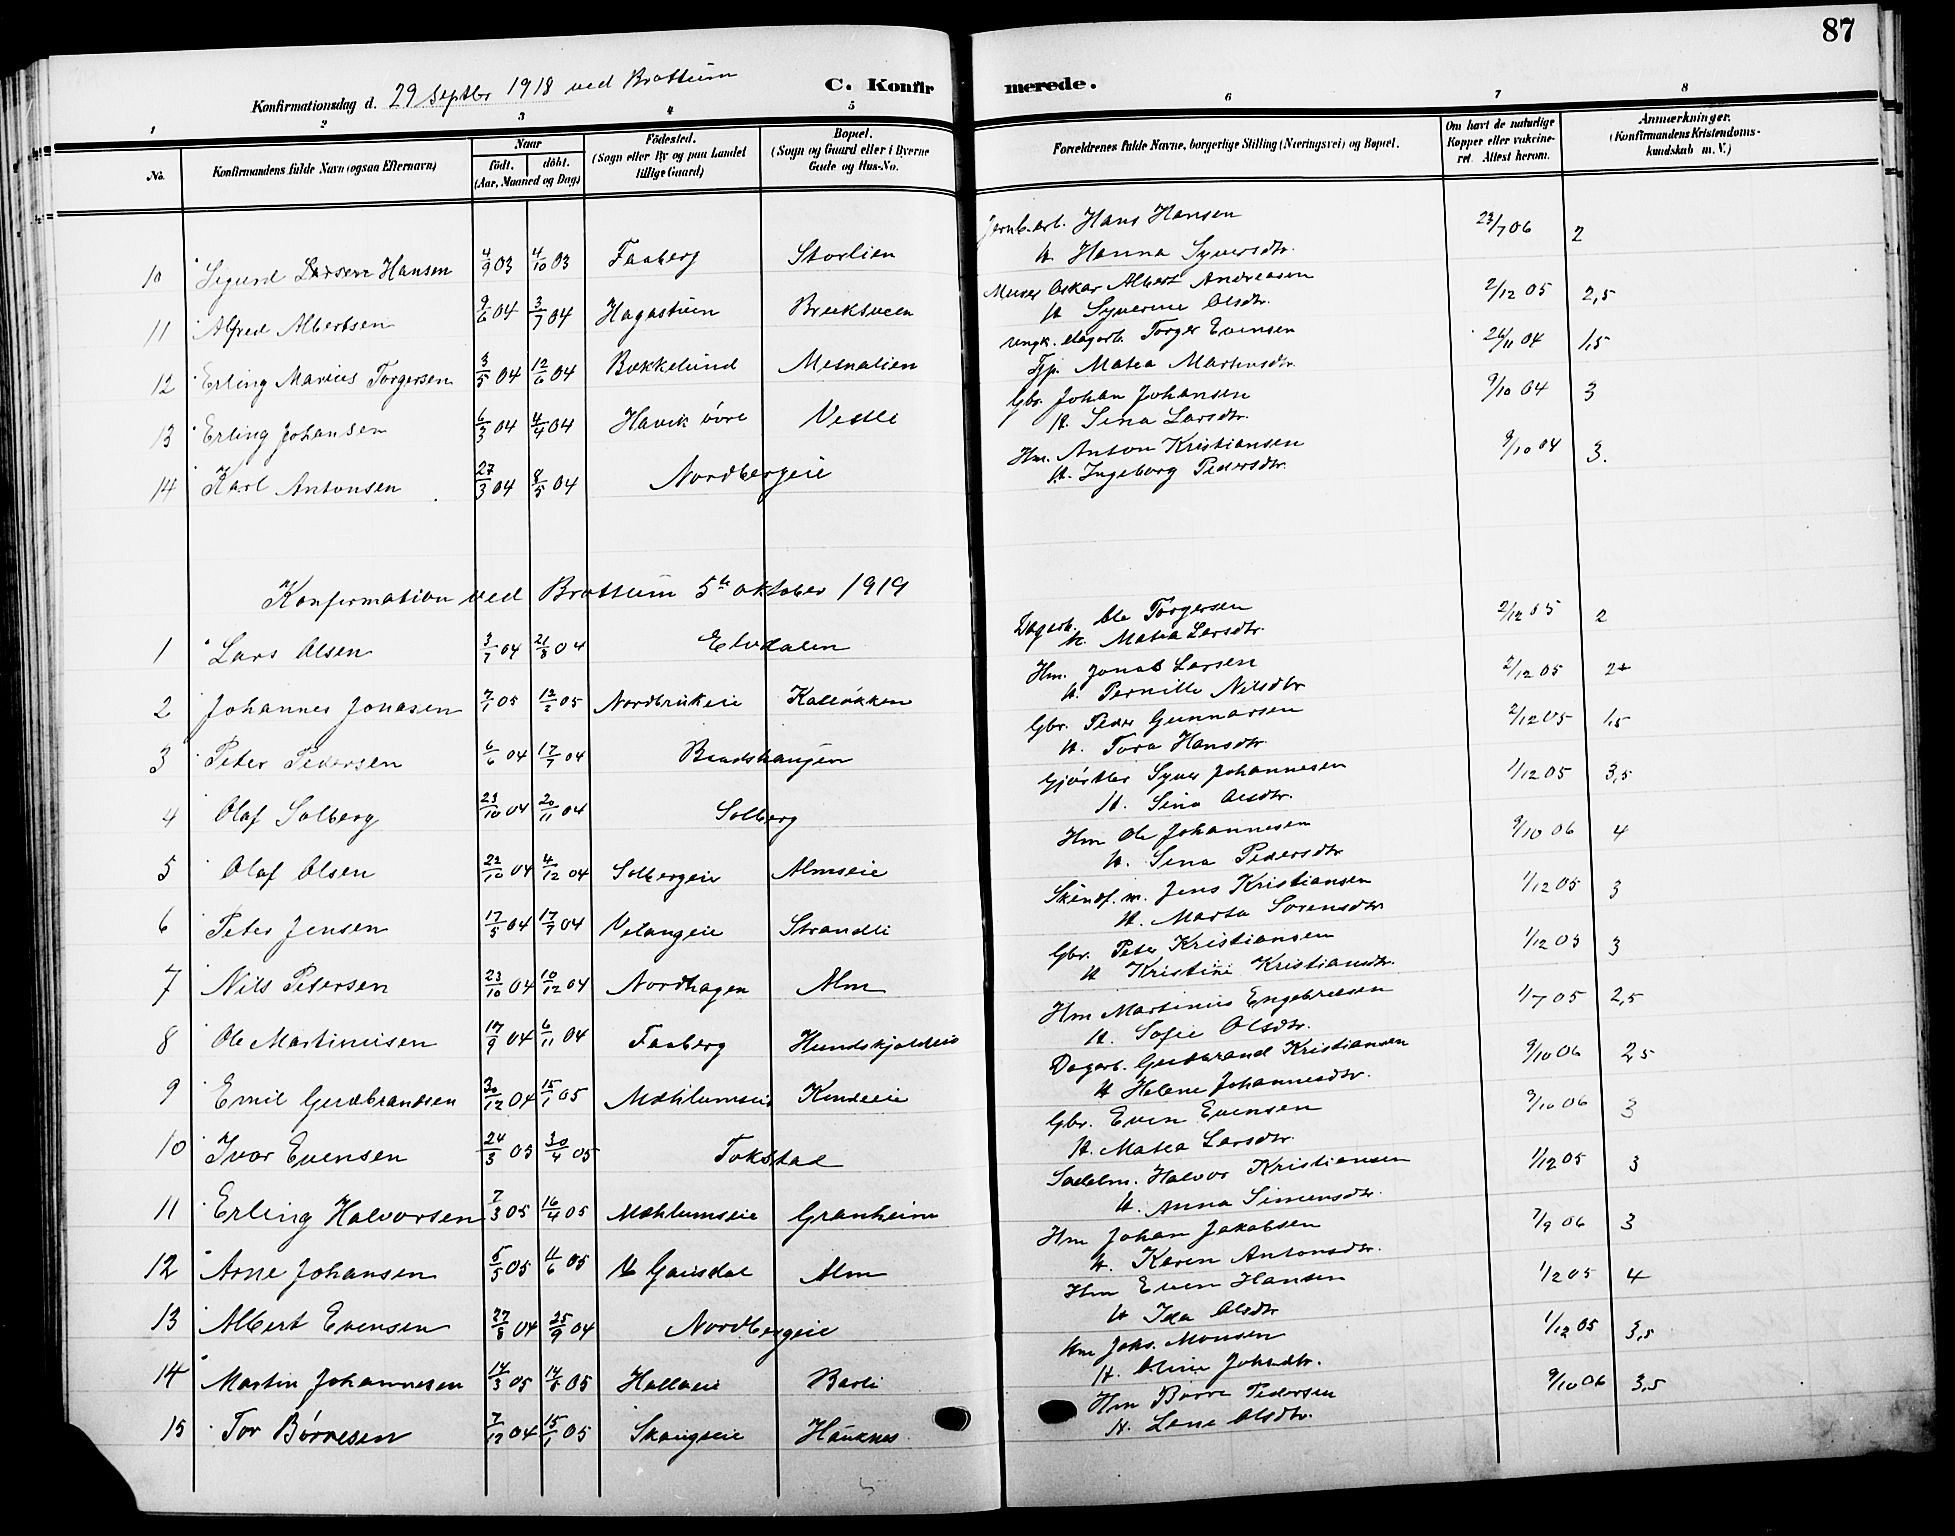 87
Konfirmationsdag d. 29 Septbr 1918 ved Brøttum
C. Konfirmerede.
1 2 3 4 5 6 7 8
No.
Konfirmandens fulde Navn (ogsaa Efternavn)
Naar
født. døbt.
(Aar, Maaned og Dag)
Fødested.
(Sogn eller By og paa Landet tillige Gaard)
Bopæl.
(Sogn og Gaard eller i Byerne Gade og Hus-No.
Forældrenes fulde Navne, borgerlige Stilling (Næringsvei) og Bopæl.
Om havt de naturlige Kopper eller vakcineret. Attest herom.
Anmærkninger.
(Konfirmandens Kristendomskundskab m. V.)
10 Sigurd Larsen Hansen 4/9 03 4/10 03 Faaberg Storlien Jernb.arb. Hans Hansen 23/7 06 2
H. Hanna Syversdtr.
11 Alfred Albertsen 9/6 04 3/7 04 Hagastuen Murer Oskar Albert Andreasen 2/12 05 2,5
H. Syverine Olsdtr.
12 Erling Marius Torgersen 3/5 04 12/6 04 Bækkelund Mesnalien ungk. dagarb. Torger Evensen 26/11 04 1,5
Tjp. Matea Martinsdtr.
13 Erling Johansen 6/3 04 4/4 04 Havik övre Vesle Gbr. Johan Johansen 9/10 04 3
H. Sina Larsdtr.
14 Karl Antonsen 27/3 04 8/5 04 Nordbergeie Hm. Anton Kristiansen 9/10 04 3.
H. Ingeborg Pedersdtr.
Konfirmation ved Brøttum 5te oktober 1919
1 Lars Olsen 3/7 04 21/8 04 Elvdalen Dagarb. Ole Torgersen 2/12 05 2
H. Matea Larsdtr.
2 Johannes Jonasen 7/1 05 12/2 05 Nordbrukeie Kalløkken Hm. Jonas Larsen 2/12 05 2+
H. Pernille Nilsdtr
3 Peter Pedersen 6/6 04 17/7 04 Bradshaugen Gbr. Peder Gunnarsen 2/12 05 1,5
H. Tora Hansdtr.
4 Olaf Solberg 23/10 04 20/11 04 Solberg Gjørtler Syver Johannesen 1/12 05 3,5
H. Sina Olsdtr.
5 Olaf Olsen 22/10 04 4/12 04 Solbergeie Almseie Hm Ole Johannesen 9/10 06 4
H. Sina Pedersdtr
6 Peter Jensen 17/5 04 17/7 04 Velangeie Strandli Skindf. m. Jens Kristiansen 1/12 05 3
H. Marta Sorensdtr
7 Nils Petersen 23/10 04 10/12 04 Nordhagen Alm Gbr. Peter Kristiansen 1/12 05 3
H Kristine Kristiansdtr.
8 Ole Martinusen 17/9 04 6/11 04 Faaberg Hundskjoldeie Hm Martinus Engebretsen 1/7 05 2,5
H. Sofie Olsdtr.
9 Emil Gudbrandsen 30/12 04 15/1 05 Mæhlumseie Kindeeie Dagarb. Gudbrand Kristiansen 9/10 06 2,5
H Helene Johannesdtr.
10 Ivar Evensen 24/3 05 30/4 05 Tokstad Gbr. Even Evensen 9/10 06 3
H. Matea Larsdtr.
11 Erling Halvorsen 7/3 05 16/4 05 Mæhlumseie Granheim Sadelm. Halvor Kristiansen 1/12 05 3
H. Anna Simensdtr.
12 Arne Johansen 5/5 05 4/6 05 V Gausdal Alm Hm Johan Jakobsen 7/9 06 3
H. Karen Antonsdtr.
13 Albert Evensen 27/8 04 25/9 04 Nordbergeie Hm Even Hansen 1/12 05 4
H Ida Olsdtr
14 Martin Johannesen 14/3 05 Hallaeie Barli Hm Johs. Monsen 1/12 05 3,5
H. Oline Johsdtr.
15 Tor Børresen 7/12 04 15/1 05 Skaugseie Hauknes. Hm Børre Pedersen 9/10 06 3,5
H. Lena Olsdtr.